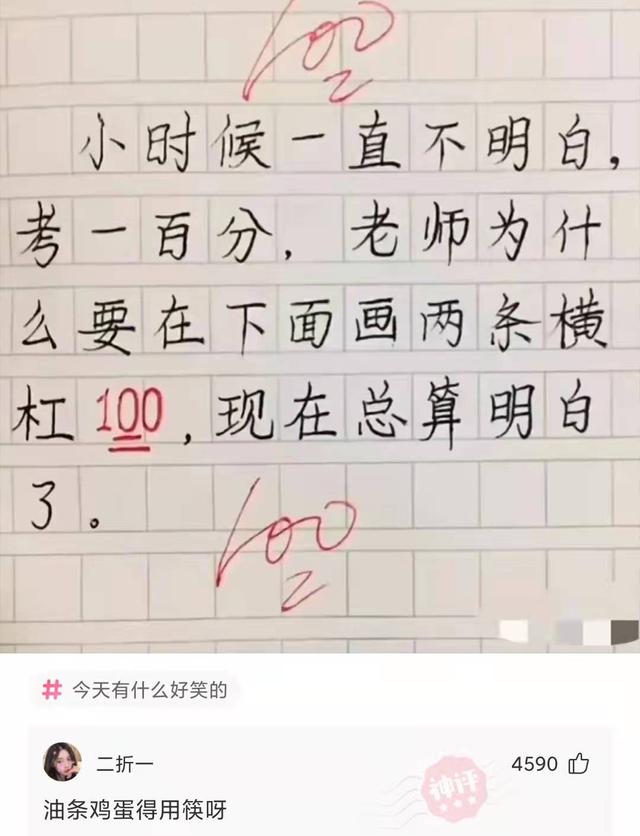 100
小时候一直不明白，
考一百分，老师为什
么要在下面画两条横
杠100，现在总算明白
了。
100
# 今天有什么好笑的
二折一
4590
神评
油条鸡蛋得用筷呀